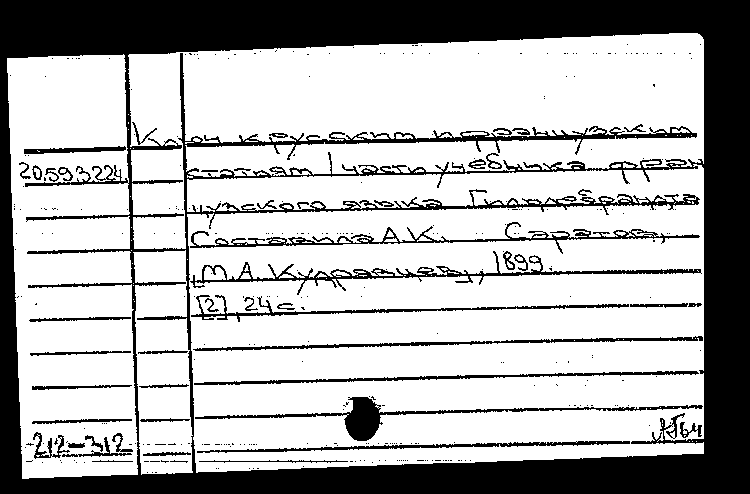 Ключ к русским и французским
20.593.224 статиям 1 части учебника фран
цузского языка Гильдебрандта
Составила А.К. Саратов,
[М.А. Кудрявцев], 1899.
[2], 24 с.
212-312